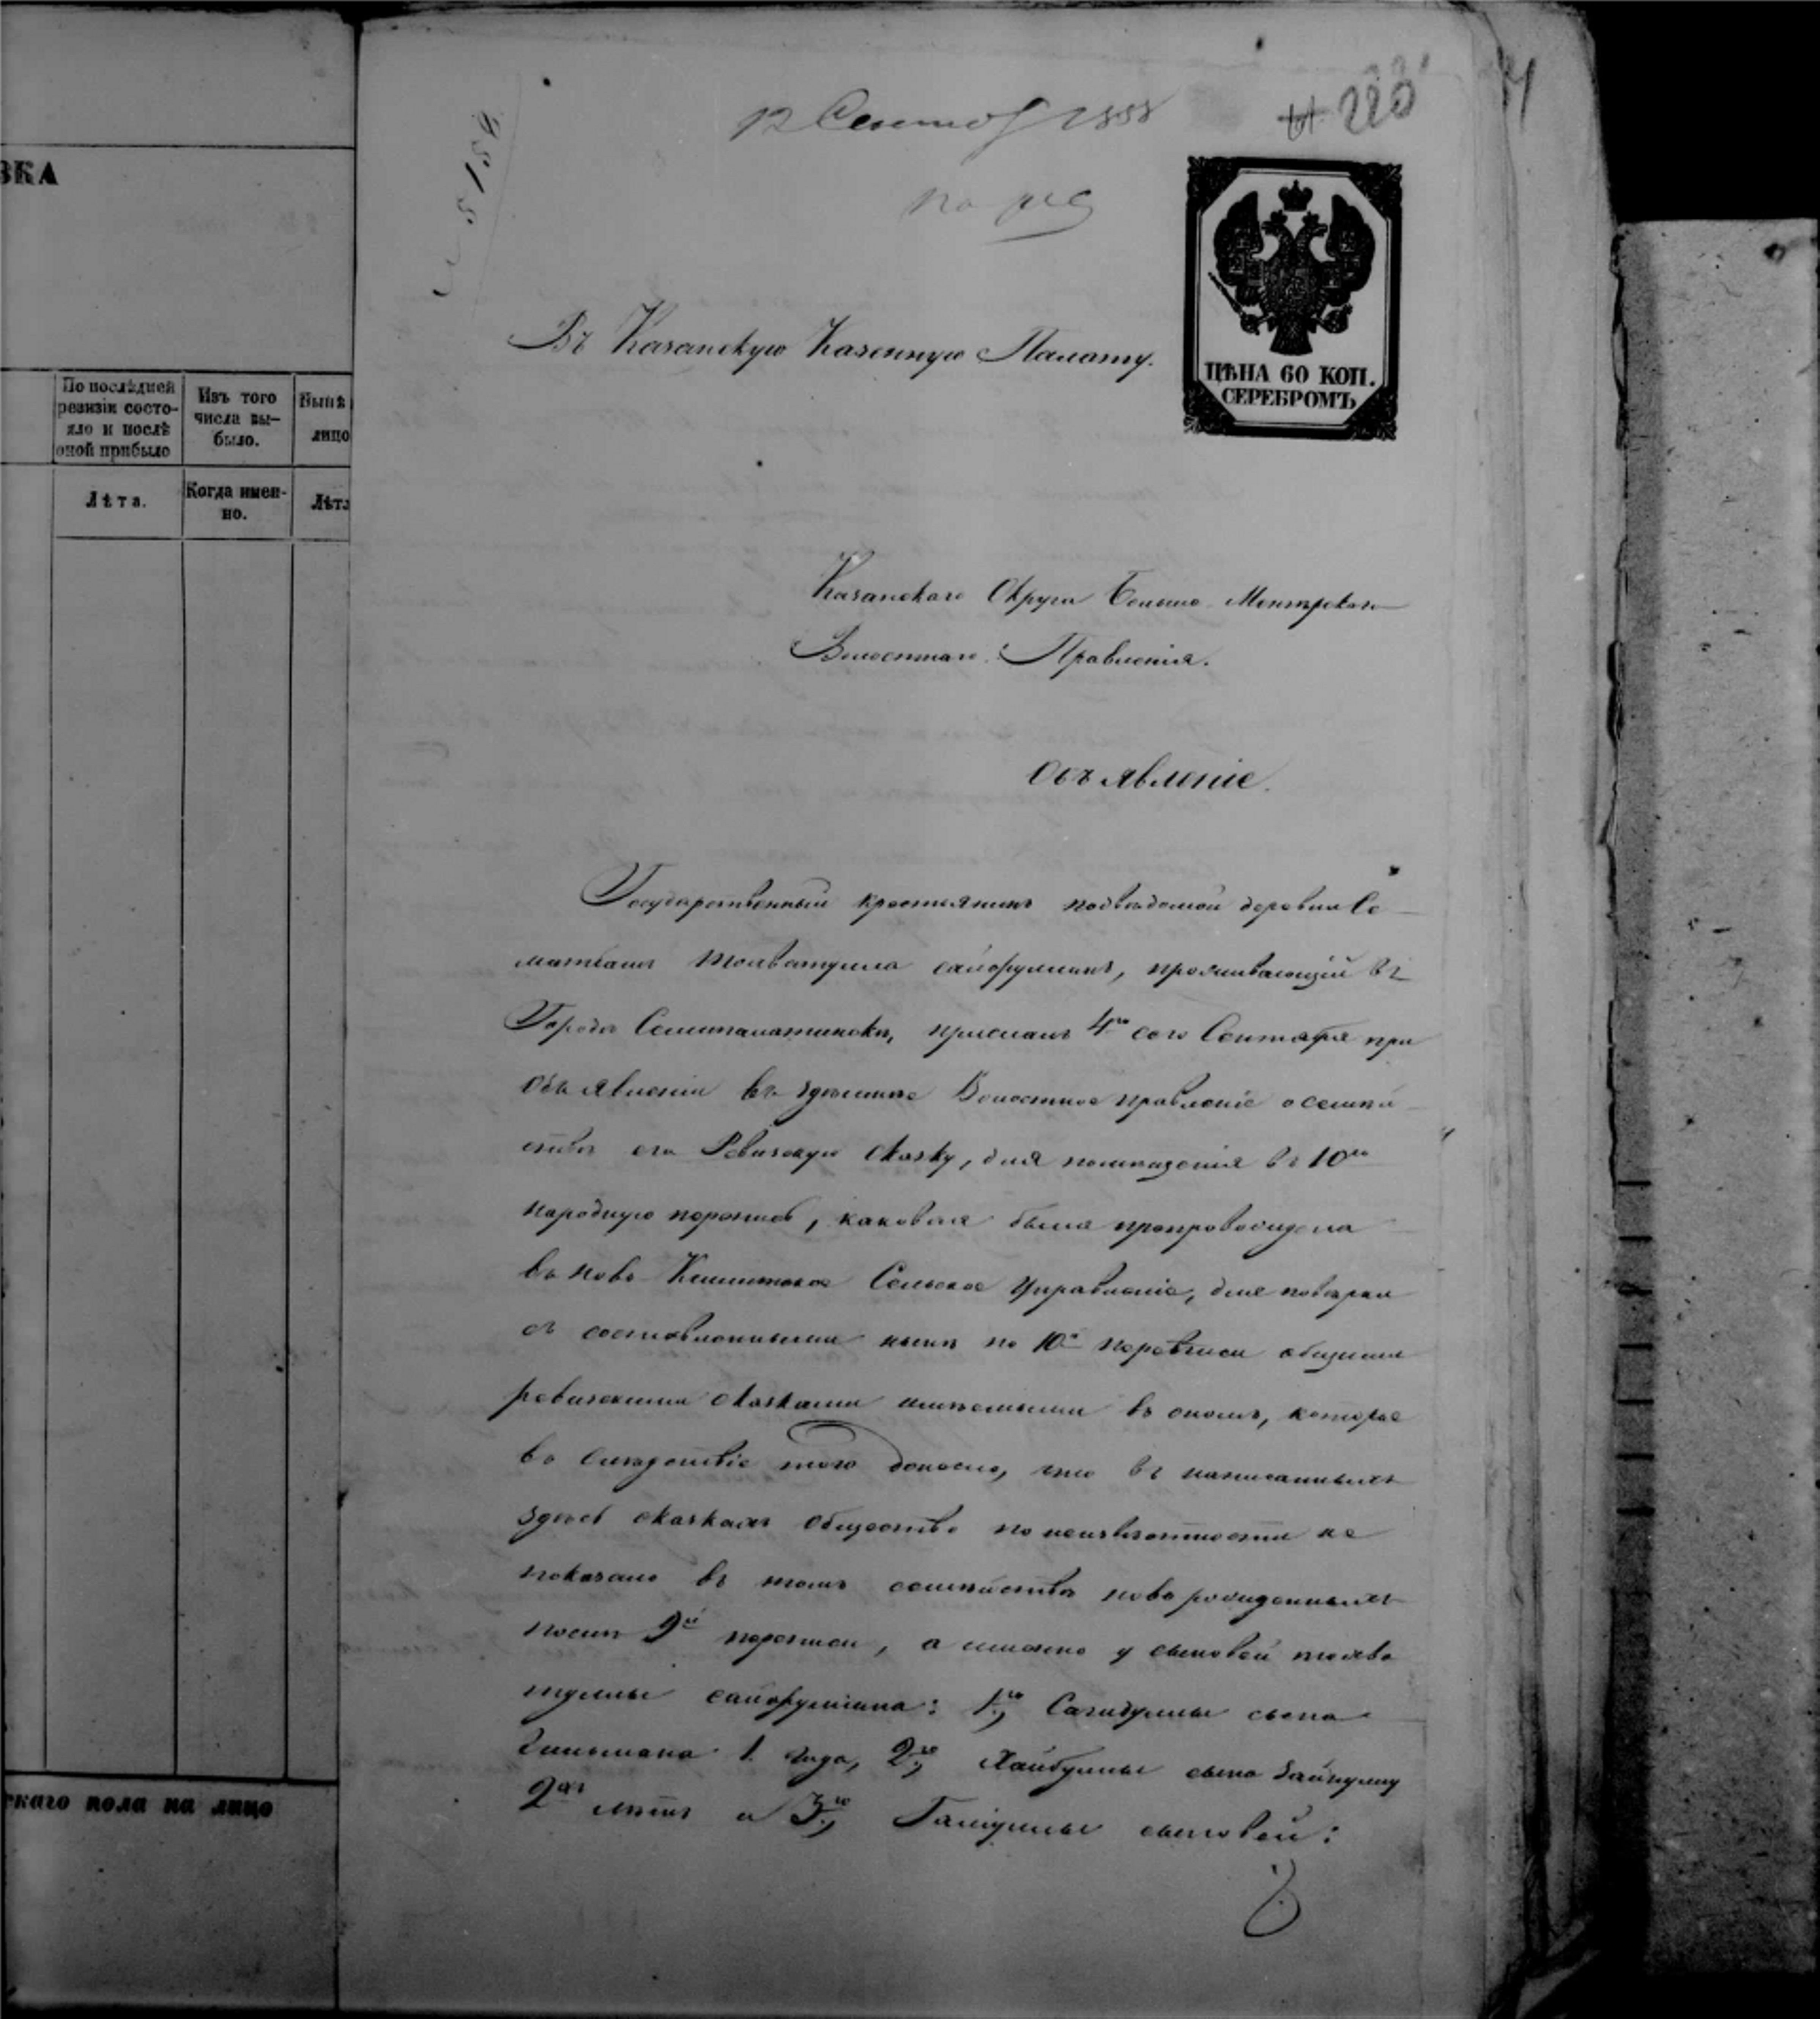 ВКА
По послѣдней
ревизіи состо-
яло и послѣ
оной прибыло
Изъ того
числа вы-
было.
Нынѣ
лицо
Лѣта.
Когда имен-
но.
Лѣта
скаго пола на лицо
12 Сентяб 1858
220
ЦѢНА 60 КОП.
СЕРЕБРОМЪ
Въ Казанскую Казенную Палату.
Казанскаго Округа Больше Менгерскаго
Волостнаго Правленія.
Объявленіе.
Государственный крестьянинъ подвѣдомой деревни
проживающій въ
Городѣ Семипалатинскѣ, прислалъ 4го сего Сентября при
объявленіи въ здѣшнее Волостное правленіе о семей
ствѣ его Ревизскую сказку, для помѣщенія въ 10ю
народную перепись, каковая была препровождена
въ Ново Кишитское Сельское Управленіе, для повѣрки
съ составленными нынѣ по 10й переписи общими
ревизскими сказками имѣемыми въ ономъ, которое
въ слѣдствіе того донесло, что въ написанныхъ
здѣсь сказкахъ Общества по неизвѣстности не
показано въ томъ семействѣ новорожденныхъ
послѣ 9й переписи, а именно у сыновей
1го, Сагидуллы сына
1 года, 2го, Хайбуллы сына Зайнуллу
2хъ лѣтъ и 3го, сыновей: